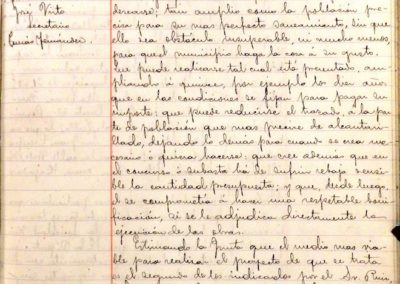 Secretario
descanso, tan amplio como la población pre-
cisa para su mas perfecto saneamiento, sin que
ello sea obstáculo insuperable ni mucho menos,
para que el municipio haga la cosa á su gusto.
Que puede realizarse tal cual está presentado, am-
pliando á quince, por ejemplo los diez años
que en las condiciones se fijan para pagar su
importe; que puede reducirse el trazado, a la par-
te de población que mas precise de alcantari-
llado, dejando lo demas para cuando se crea ne-
cesario ó quiera hacerse; que cree ademas que en
el concurso ó subasta há de sufrir rebaja sensi-
ble la cantidad presupuesta; y que, desde luego,
el se comprometia á hacer una respetable boni-
ficación, si se le adjudica directamente la
ejecución de las obras.
Estimando la Junta que el medio mas via-
ble para realizar el proyecto de que se trata
es el segundo de los indicados por el Sr. Ruiz